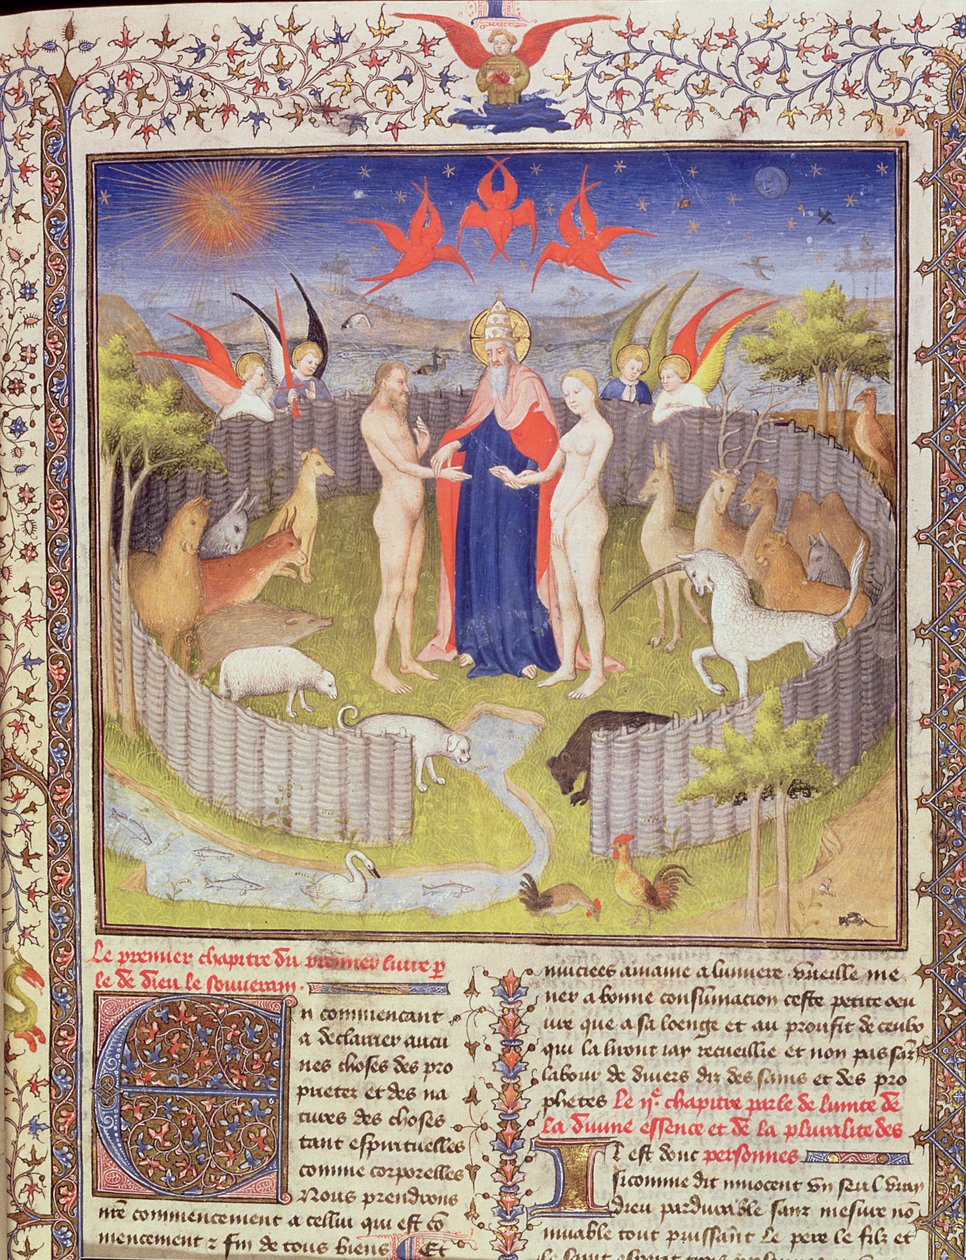 Le premier chapitre du premier livre p̲
le de dieu le souverain.
En commencant
a declairer aucu
nes choses des pro
prietez et des na
tures des choses
tant espirituelles
comme corporelles
Nous prendrons
nr̄e commencement a cellui qui est cō
mencement ⁊ fin de tous biens Et
nuciees amame a lumiere
ner a bonne consūmacion ceste petite oeu
ure que a sa loenge et au prouffit de ceulx
qui la liront iay recueillie et non pas sans
labour de divers diz des sains et des pro
phetes Le ijᵉ chapitre parle de lunite de
la divine essence et de la pluralite des
Il est donc personnes
sicomme dit innocent vn seul vray
dieu pardurable sanz mesure nō
muable tout puissant Le pere le filz et
le saint esperit trois